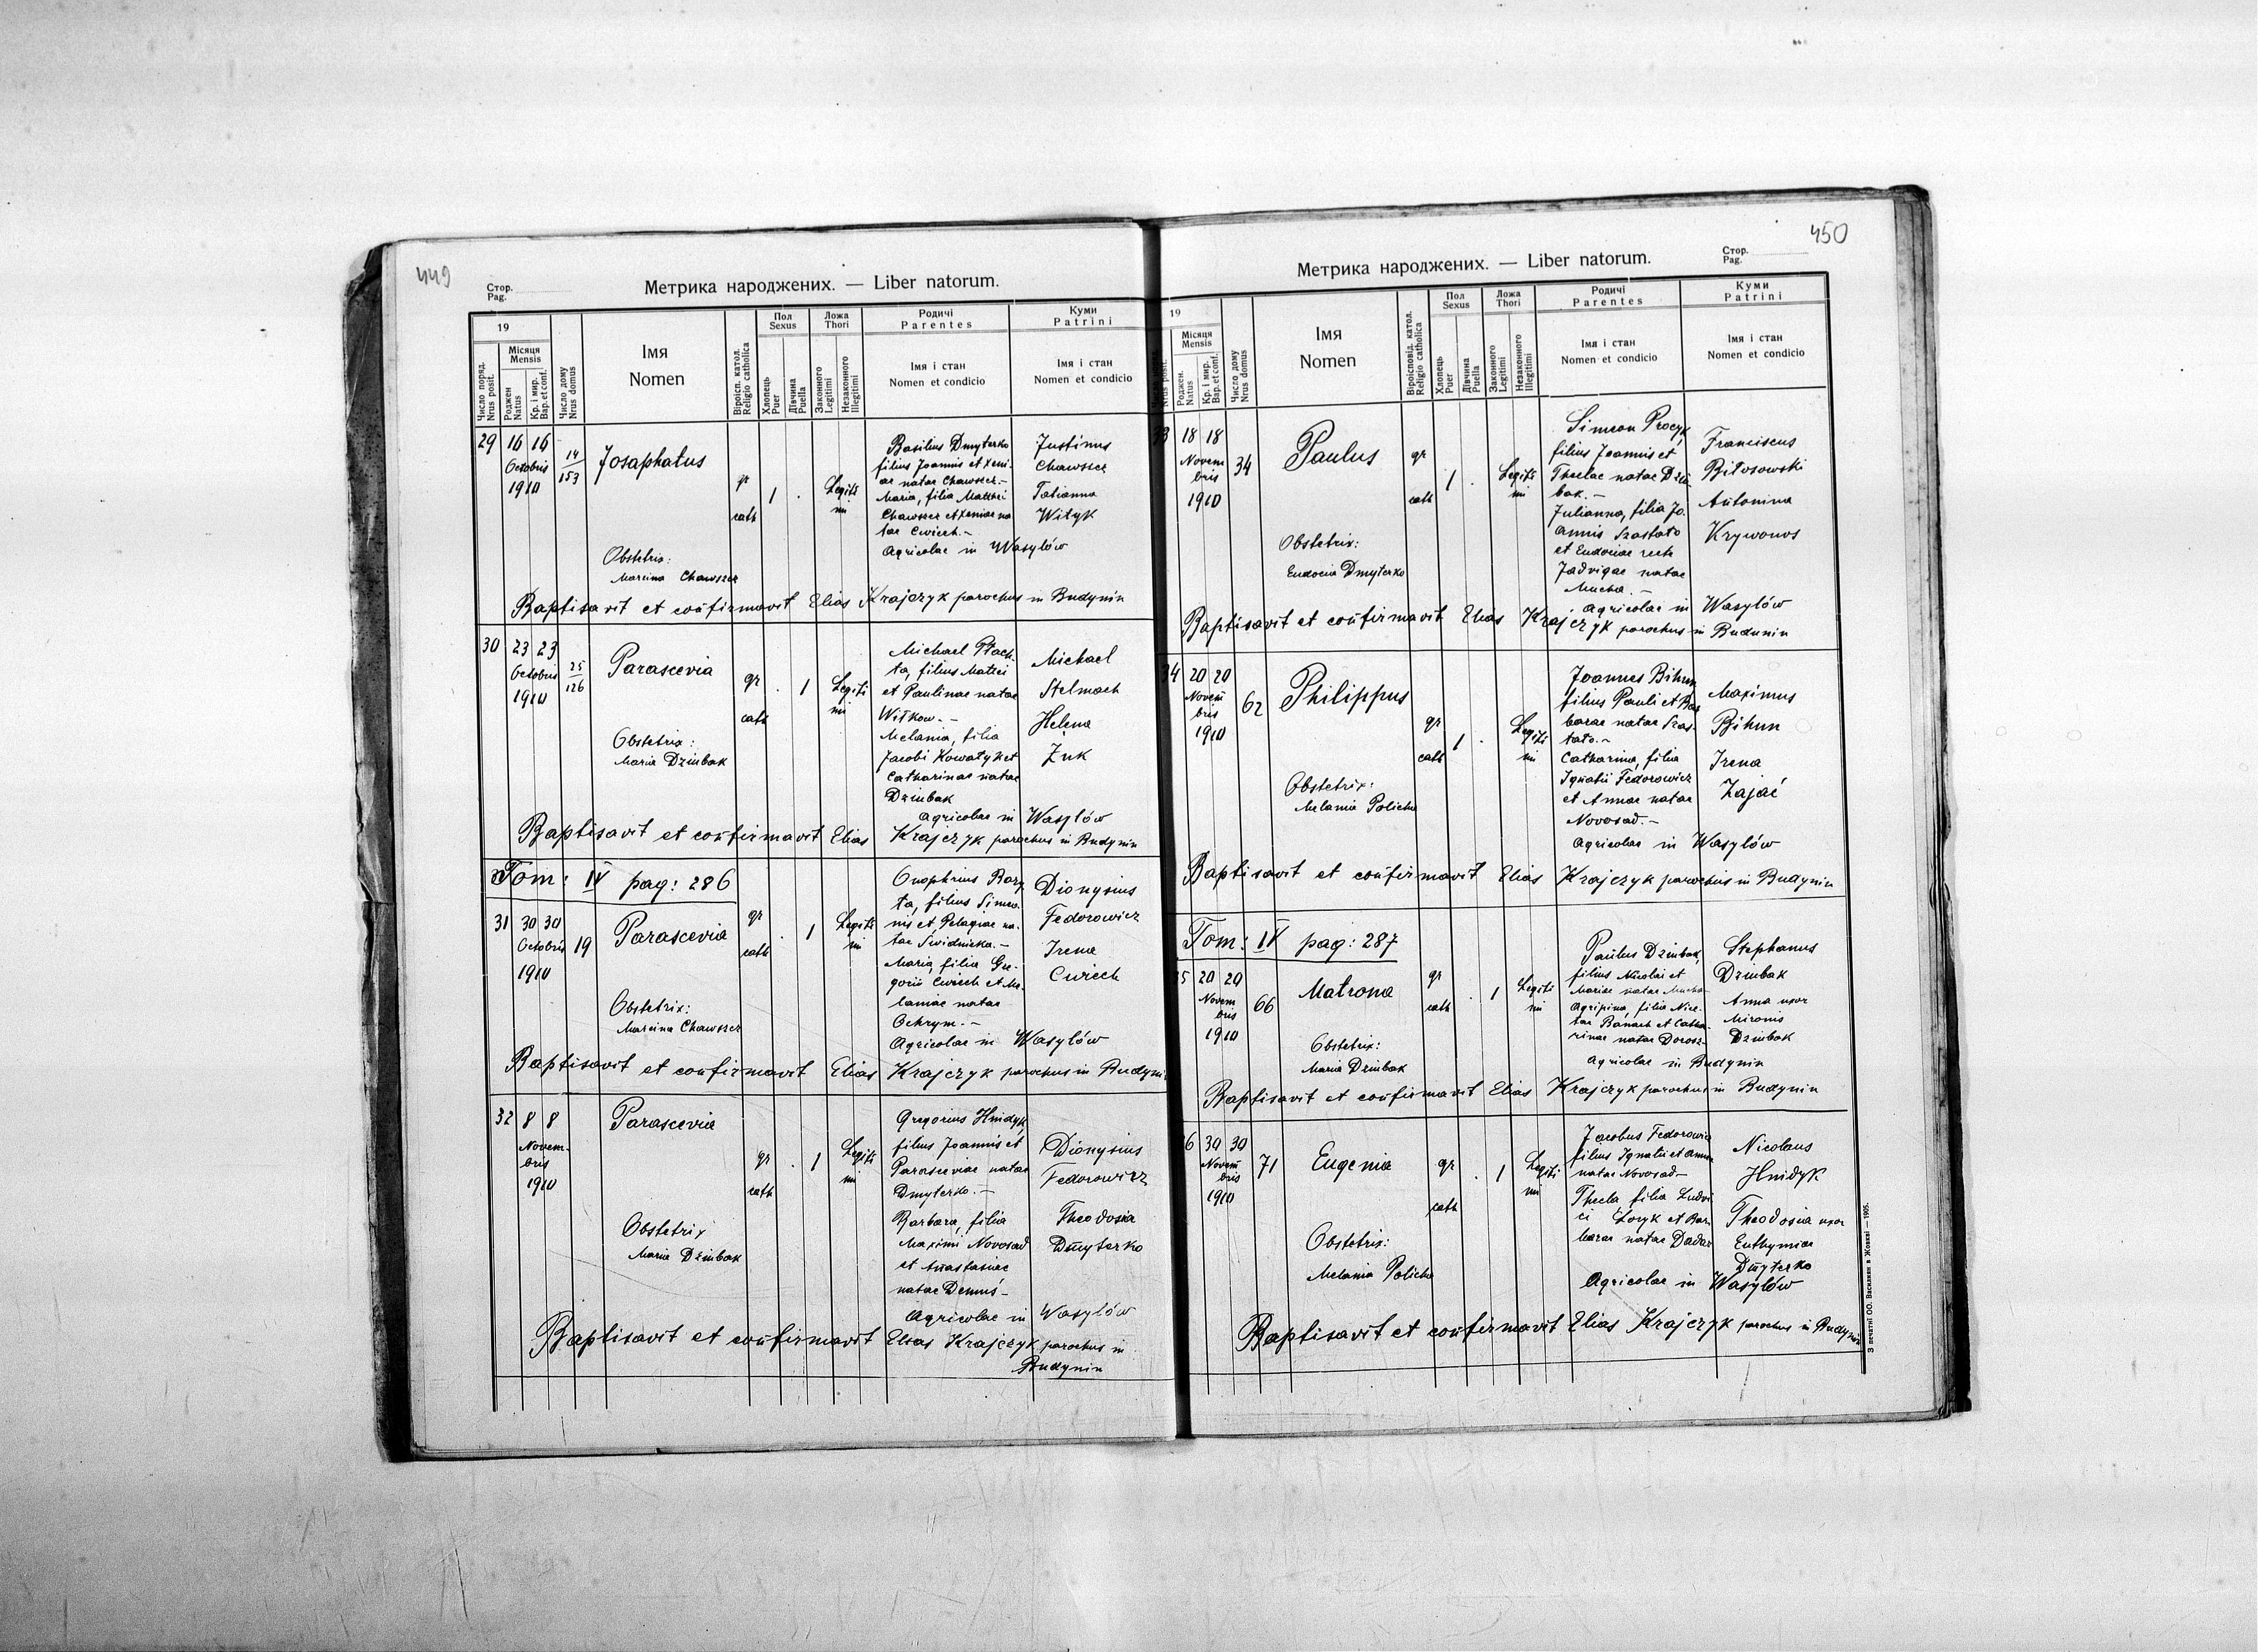 449
Стор.
Pag.
Метрика народжених. — Liber natorum.
19
Число поряд.
Nrus posit.
Місяця
Mensis
Роджен
Natus
Кр. і мир.
Bap. et conf.
Число дому
Nrus domus
Імя
Nomen
Віроісп. катол.
Religio catholica
Пол
Sexus
Хлопець
Puer
Дївчина
Puella
Ложа
Thori
Законного
Legitimi
Незаконного
Illegitimi
Родичі
Parentes
Імя і стан
Nomen et condicio
Куми
Patrini
Імя і стан
Nomen et condicio
29 16 16
Octobris
1910
14
153
Josaphatus
gr
cath
1 .
Legiti
mi
Basilius Dmyterko
filius Joannis et Xeni-
ae natae Chawszcz.-
Maria, filia Matthei
Chawszcz et Xeniae na
tae Cwiech.-
Agricolae in Wasylów
Justinus
Chawszcz
Tatianna
Wityk
Obstetrix:
Marcina Chawszcz
Baptisavit et confirmavit Elias Krajczyk parochus in Budynin
30 23 23
Octobris
1910
25
126
Parascevia
gr
cath
. 1
Legiti
mi
Michael Płach-
ta, filius Mattei
et Paulinae natae
Witkow.-
Melania, filia
Jacobi Kowałyk et
Catharinae natae
Dziubak
Agricolae in Wasylów
Michael
Stelmach
Helena
Żuk
Obstetrix:
Maria Dziubak
Baptisavit et confirmavit Elias Krajczyk parochus in Budynin
Tom: IV pag: 286
31 30 30
Octobris
1910
19
Parascevia
gr
cath
. 1
Legiti
mi
Onophrius
ta, filius Simeo-
nis et Pelagiae na-
tae Świdnicka.-
Maria, filia Gre-
gorii Cwiech et Me-
laniae natae
Ochrym.-
Agricolae in Wasylów
Dionysius
Fedorowicz
Irena
Cwiech
Obstetrix:
Marcina Chawszcz
Baptisavit et confirmavit Elias Krajczyk parochus in Budynin
32 8 8
Novem-
bris
1910
Parascevia
gr
cath
. 1
Legiti
mi
Gregorius Hnidyk,
filius Joannis et
Parasceviae natae
Dmyterko.-
Barbara, filia
Maximi Novosad
et Anastasiae
natae Demuś-
Agricolae in Wasylów
Dionysius
Fedorowicz
Theodosia
Dmyterko
Obstetrix
Maria Dziubak
Baptisavit et confirmavit Elias Krajczyk parochus in
Budynin
450
Стор.
Pag.
Метрика народжених. — Liber natorum.
19
Nrus posit.
Місяця
Mensis
Роджен.
Natus
Кр. і мир.
Bap. et conf.
Число дому
Nrus domus
Імя
Nomen
Віроісповід. катол.
Religio catholica
Пол
Sexus
Хлопець
Puer
Дївчина
Puella
Ложа
Thori
Законного
Legitimi
Незаконного
Illegitimi
Родичі
Parentes
Імя і стан
Nomen et condicio
Куми
Patrini
Імя і стан
Nomen et condicio
3 18 18
Novem
bris
1910
34
Paulus
gr
cath
1 .
Legiti
mi
Simeon Procyk
filius Joannis et
Theclae natae Dziu-
bak.-
Julianna, filia Jo-
annis Szastało
et Eudociae recte
Jadvigae natae
Mucha.-
Agricolae in Wasylów
Franciscus
Biłosowski
Antonina
Krywonos
Obstetrix:
Eudocia Dmyterko
Baptisavit et confirmavit Elias Krajczyk parochus in Budunin
34 20 20
Novem
bris
1910
62
Philippus
gr
cath
1 .
Legiti
mi
Joannes Bihun
filius Pauli et Bar
barae natae Szas-
tało.-
Catharina, filia
Ignatii Fedorowicz
et Annae natae
Novosad.-
Agricolae in Wasylów
Maximus
Bihun
Irena
Zajać
Obstetrix:
Melania Policha
Baptisavit et confirmavit Elias Krajczyk parochus in Budynin
Tom: IV pag: 287
5 20 20
Novem
bris
1910
66
Matrona
gr
cath
. 1
Legiti
mi
Paulus Dziubak,
filius Nicolai et
Mariae natae Mucha
Agripina, filia Nice-
tae Banach et Catha-
rinae natae Dorosz-
Agricolae in Budynin
Stephanus
Dziubak
Anna uxor
Mironis
Dziubak
Obstetrix:
Maria Dziubak
Baptisavit et confirmavit Elias Krajczyk parochus in Budynin
6 30 30
Novem
bris
1910
71
Eugenia
gr
cath
. 1
Legiti
mi
Jacobus Fedorowicz
filius Ignatii et Annae
natae Novosad-
Thecla filia Ludvi
ci Łoryk et Bar-
barae natae Dadas
Agricolae in Wasylów
Nicolaus
Hnidyk
Theodosia uxor
Euthymiae
Dmyterko
Obstetrix:
Melania Policha
Baptisavit et confirmavit Elias Krajczyk parochus in Budynin
З печатнї ОО. Василиян в Жовкві — 1905.